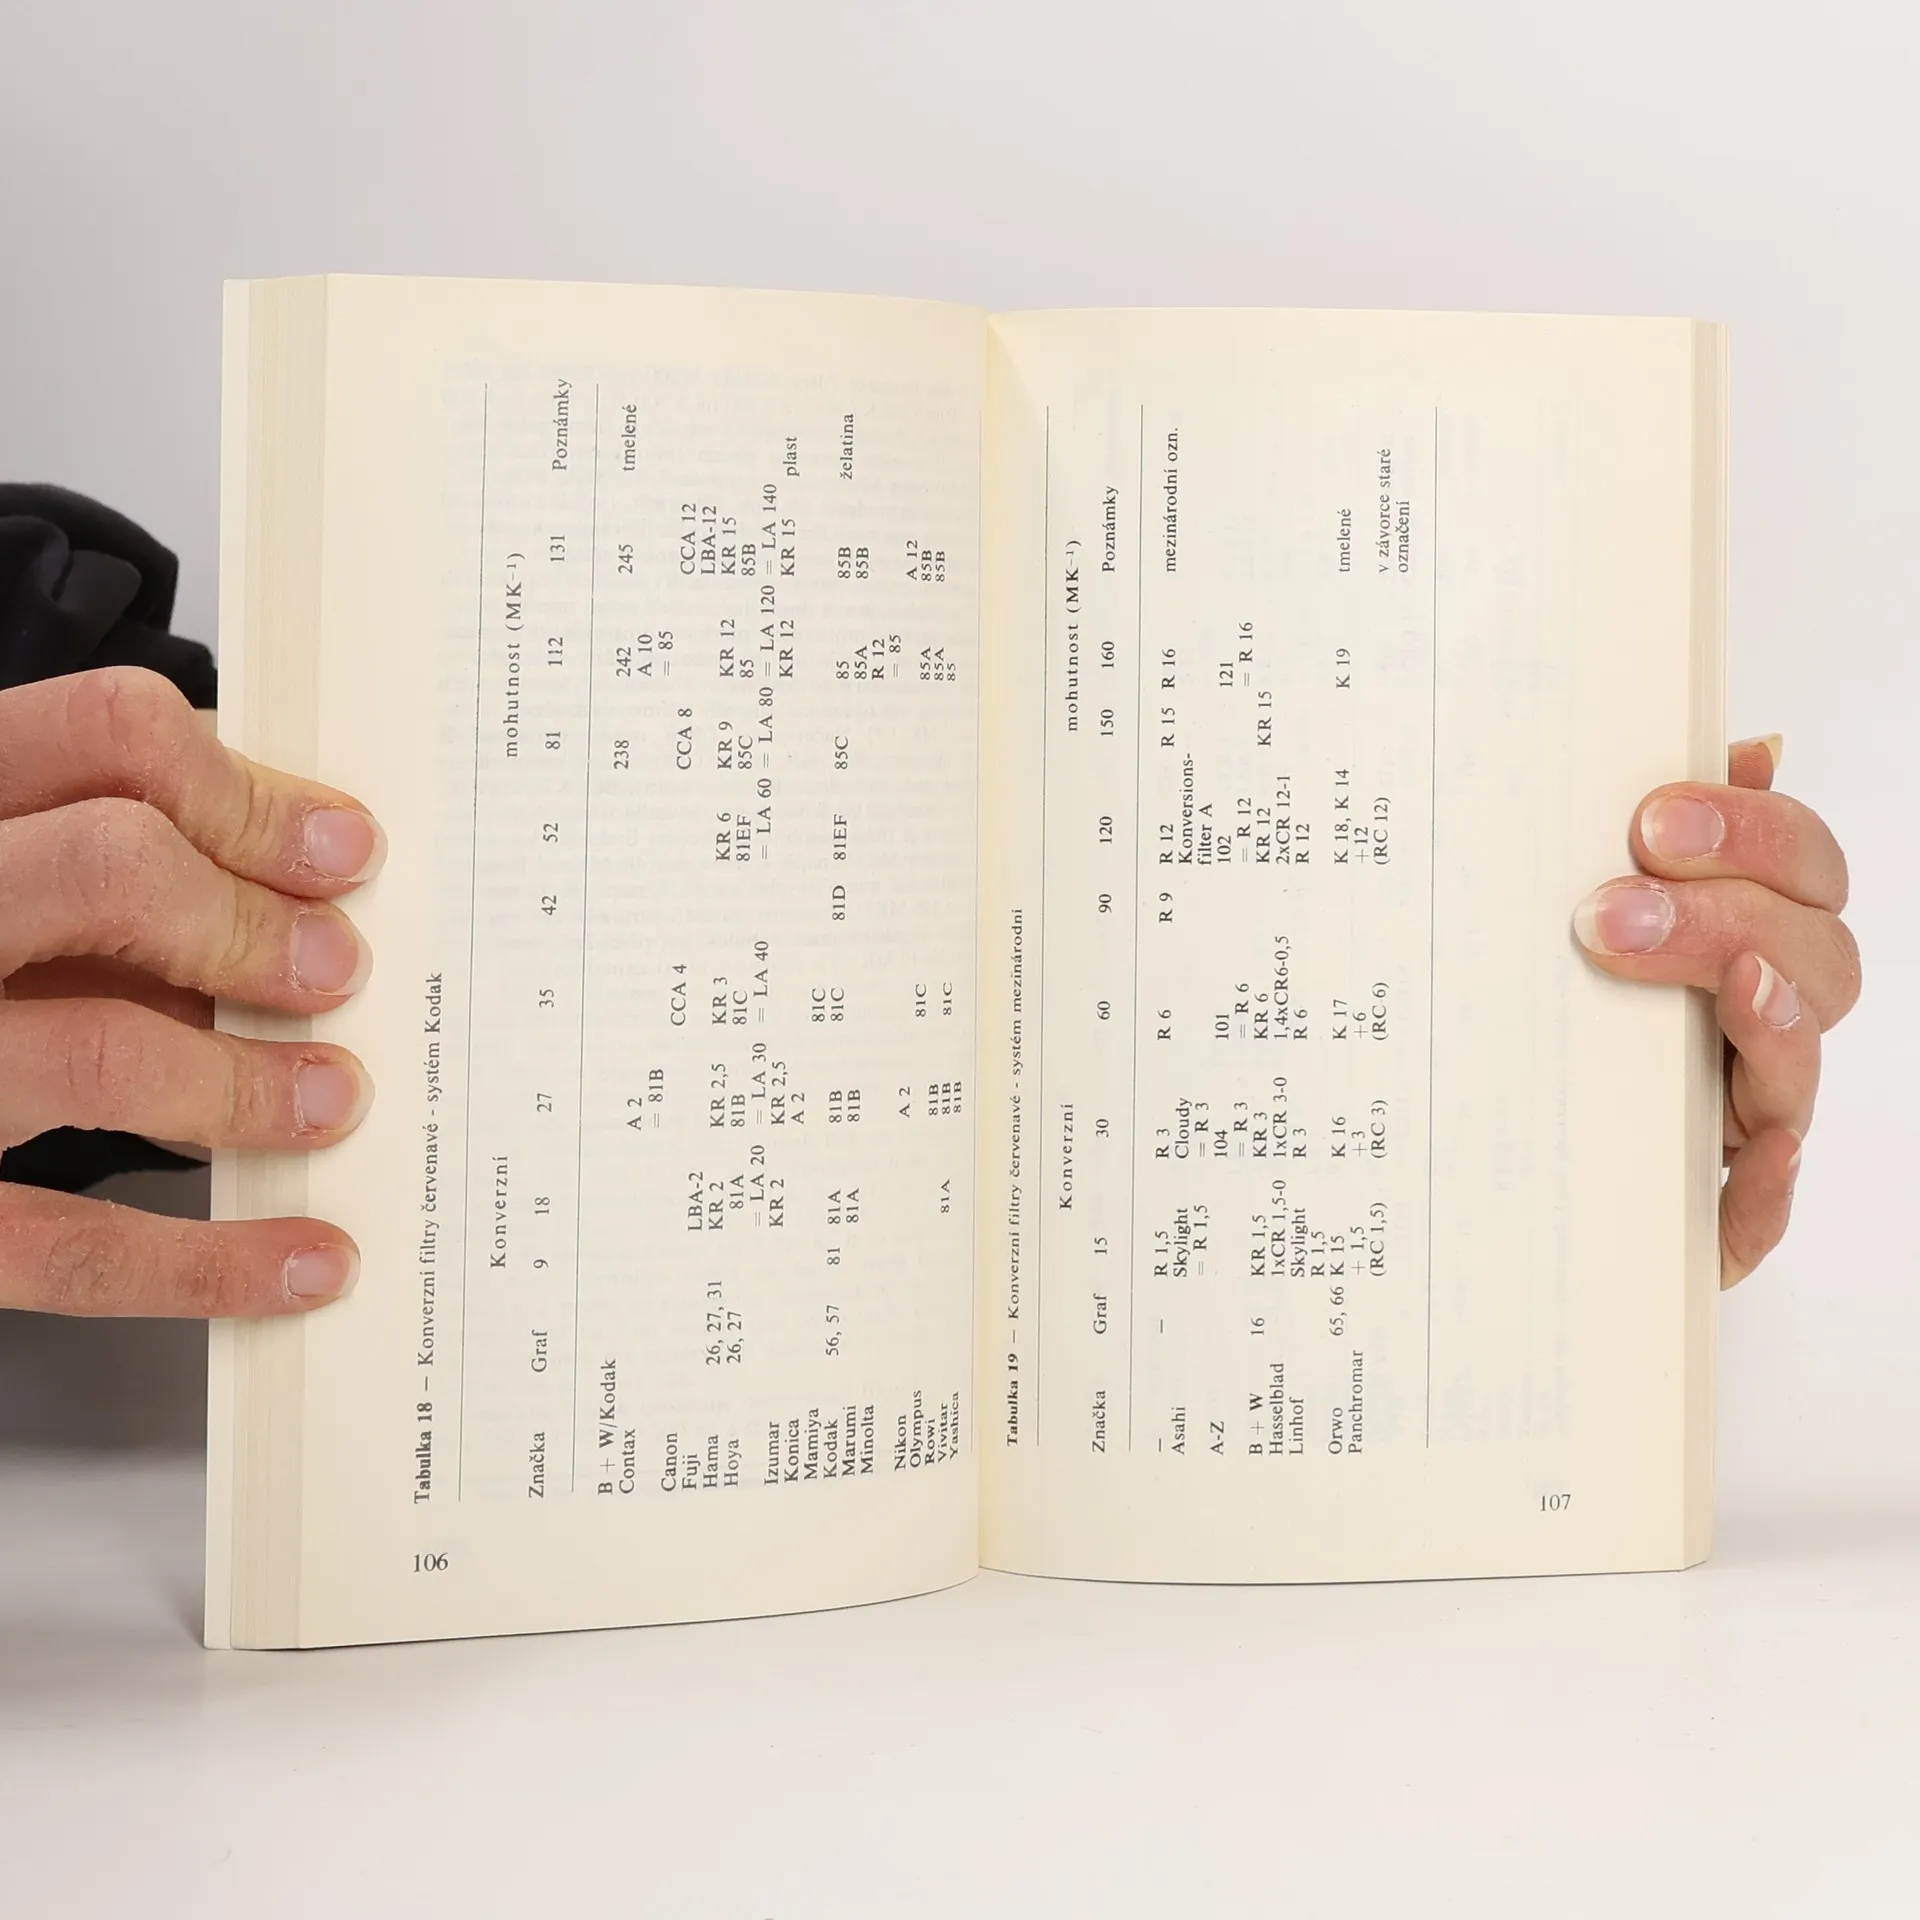 Tabulka 18 — Konverzní filtry červenavé - systém Kodak
Konverzní mohutnost (MK⁻¹)
Značka Graf 9 18 27 35 42 52 81 112 131 Poznámky
B + W/Kodak 238 242 245 tmelené
Contax A 2 A 10
= 81B = 85
Canon CCA 4 CCA 8 CCA 12
Fuji LBA-2 LBA-12
Hama 26, 27, 31 KR 2 KR 2,5 KR 3 KR 6 KR 9 KR 12 KR 15
Hoya 26, 27 81A 81B 81C 81EF 85C 85 85B
= LA 20 = LA 30 = LA 40 = LA 60 = LA 80 = LA 120 = LA 140
Izumar KR 2 KR 2,5 KR 12 KR 15 plast
Konica A 2
Mamiya 81C
Kodak 56, 57 81 81A 81B 81C 81D 81EF 85C 85 85B želatina
Marumi 81A 81B 85A 85B
Minolta R 12
= 85
Nikon A 2 A 12
Olympus 81C 85A 85B
Rowi 81B 85A 85B
Vivitar 81A 81B 81C 85
Yashica 81B
106
Tabulka 19 — Konverzní filtry červenavé - systém mezinárodní
Konverzní mohutnost (MK⁻¹)
Značka Graf 15 30 60 90 120 150 160 Poznámky
— — R 1,5 R 3 R 6 R 9 R 12 R 15 R 16 mezinárodní ozn.
Asahi Skylight Cloudy Konversions-
= R 1,5 = R 3 filter A
A-Z 104 101 102 121
= R 3 = R 6 = R 12 = R 16
B + W 16 KR 1,5 KR 3 KR 6 KR 12 KR 15
Hasselblad 1xCR 1,5-0 1xCR 3-0 1,4xCR6-0,5 2xCR 12-1
Linhof Skylight R 3 R 6 R 12
R 1,5
Orwo 65, 66 K 15 K 16 K 17 K 18, K 14 K 19 tmelené
Panchromar + 1,5 +3 +6 +12
(RC 1,5) (RC 3) (RC 6) (RC 12) v závorce staré
označení
107